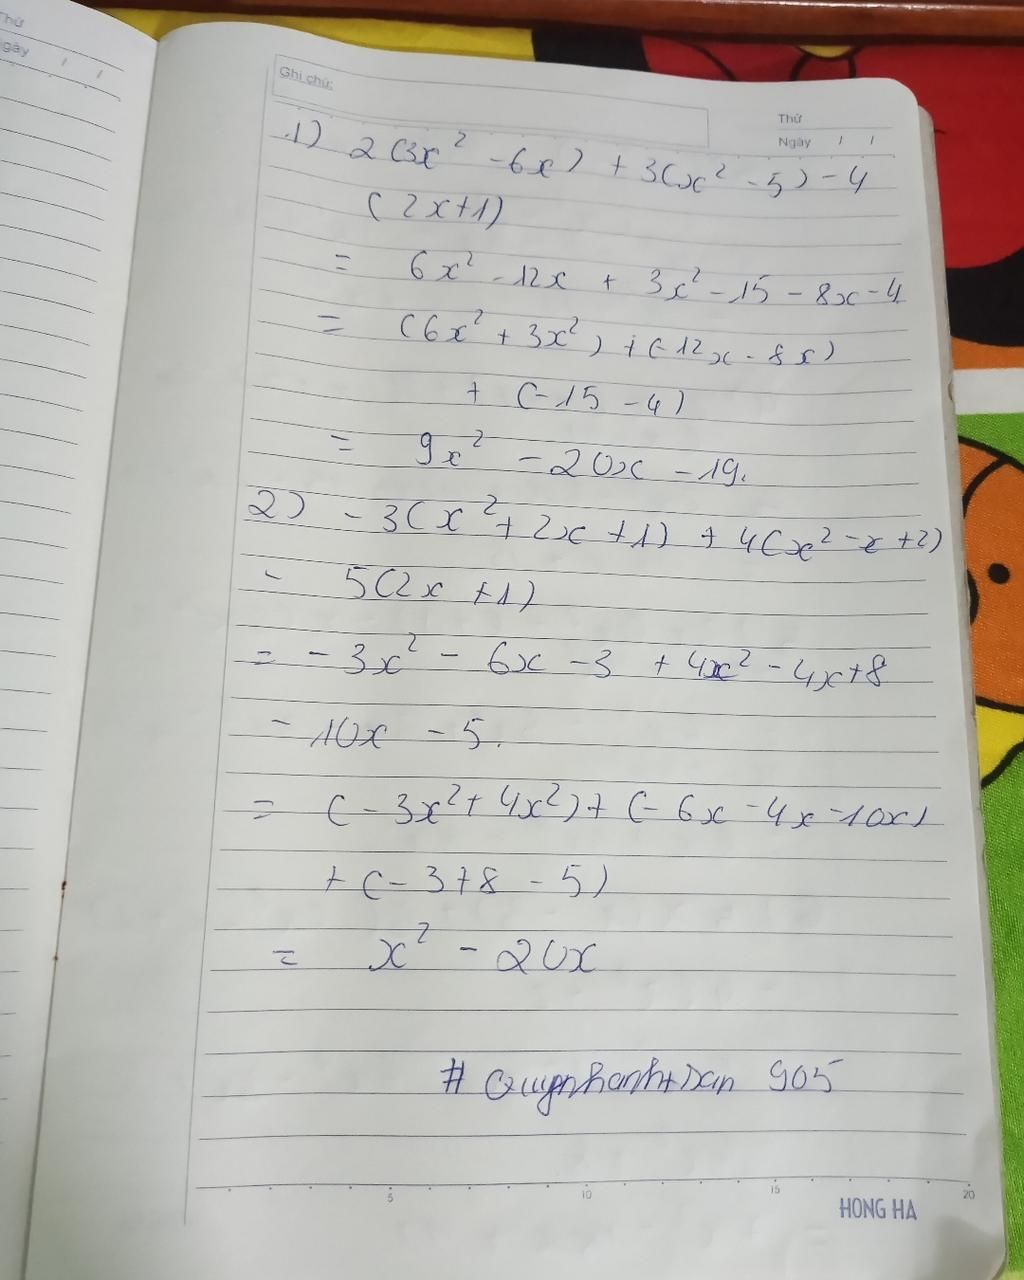 Thứ
Ngày / /
Ghi chú:
Thứ
Ngày / /
1) 2(3x² - 6x) + 3(x² - 5) - 4
(2x+1)
= 6x² - 12x + 3x² - 15 - 8x - 4
= (6x² + 3x²) + (-12x - 8x)
+ (-15 - 4)
= 9x² - 20x - 19.
2) - 3(x² + 2x + 1) + 4(x² - x + 2)
- 5(2x + 1)
= - 3x² - 6x - 3 + 4x² - 4x + 8
- 10x - 5.
= (- 3x² + 4x²) + (- 6x - 4x - 10x)
+ (- 3 + 8 - 5)
= x² - 20x
# 905
5 10 15 20
HONG HA